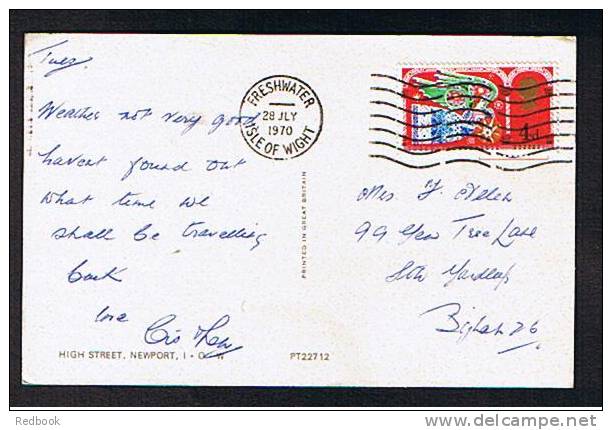 Tues.
Weather not very good
havent found out
what time we
shall be travelling
back
love
HIGH STREET, NEWPORT, I · O · W
PT22712
PRINTED IN GREAT BRITAIN
FRESHWATER
28 JLY
1970
ISLE OF WIGHT
4d
Mrs
99 Yew Tree Lane
Sth Yardley
Redbook
delcampe.net